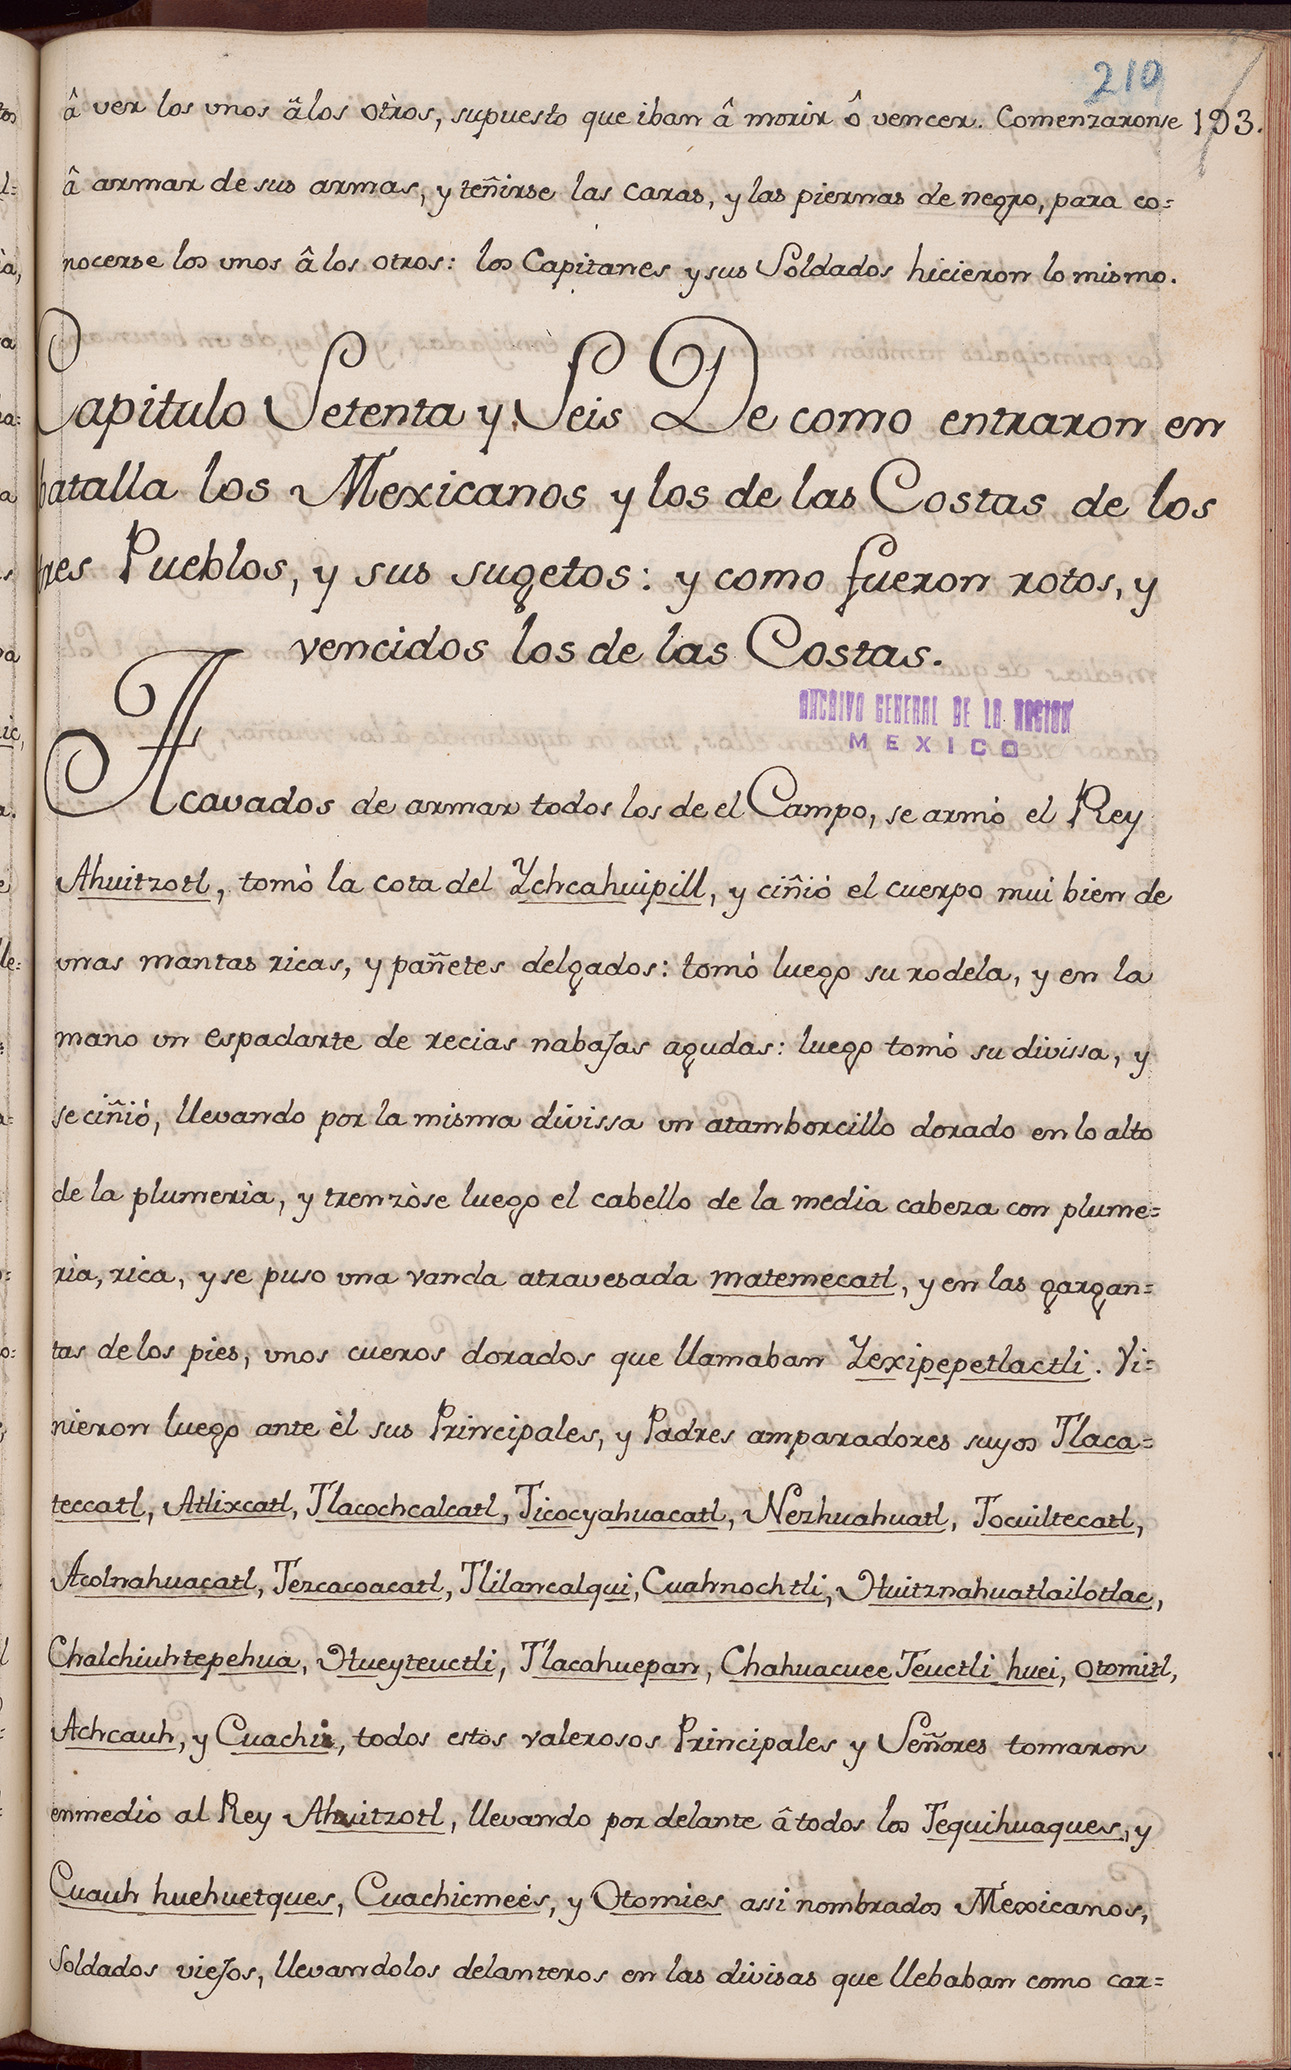 210
â ver los vnos âlos otros, supuesto que iban â morir ô vencer. Comenzaronse 193.
â armar de sus armas, y teñirse las caras, y las piernas de negro, para co=
nocerse los vnos âlos otros: los Capitanes y sus Soldados hicieron lo mismo.
Capitulo Setenta y Seis De como entraron en
batalla los Mexicanos y los de las Costas de los
tres Pueblos, y sus sugetos: y como fueron rotos, y
vencidos los de las Costas.
ARCHIVO GENERAL DE LA NACION
MEXICO
Acavados de armar todos los de el Campo, se armò el Rey
Ahuitzotl, tomò la cota del Ychcahuipill, y ciñió el cuerpo mui bien de
vnas mantas ricas, y pañetes delgados: tomò luego su rodela, y en la
mano vn espadarte de recias nabajas agudas: luego tomò su divissa, y
se ciñiò, llevando por la misma divissa vn atamborcillo dorado en lo alto
de la plumerìa, y trenzòse luego el cabello de la media cabeza con plume=
ria, rica, y se puso vna vanda atravesada matemecatl, y en las gargan=
tas de los pies, vnos cueros dorados que llamaban Yexipepetlactli. Vi=
nieron luego ante èl sus Principales, y Padres amparadores suyos Tlaca=
teccatl, Atlixcatl, Tlacochcalcatl, Ticocyahuacatl, Nezhuahuatl, Tocuiltecatl,
Acolnahuacatl, Tezcacoacatl, Tlilancalqui, Cuahnochtli, Huitznahuatlailotlac,
Chalchiuhtepehua, Hueyteuctli, Tlacahuepan, Chahuacuee Teuctli huei, otomitl,
Achcauh, y Cuachic, todos estos valerosos Principales y Señores tomaron
enmedio al Rey Ahuitzotl, llevando por delante â todos los Tequihuaques, y
Cuauh huehuetques, Cuachicmeès, y Otomies assi nombrados Mexicanos,
Soldados viejos, llevandolos delanteros en las divisas que llebaban como car=